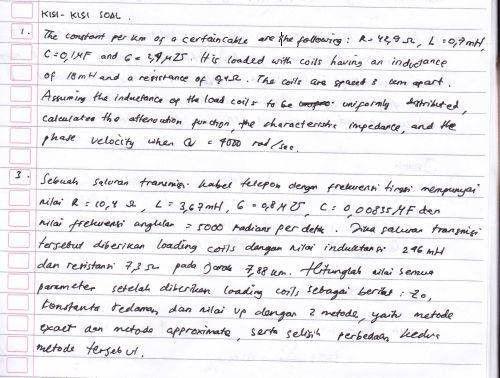 KISI-KISI SOAL.
1. The constant per km of a certain cable are the following: R = 42,9 Ω, L = 0,7 mH,
C = 0,1 μF and G = 2,4 μ℧. It is loaded with coils having an inductance
of 18 mH and a resistance of 0,4 Ω. The coils are spaced 3 km apart.
Assuming the inductance of the load coils to be uniformly distributed,
calculation the attenuation function, the characteristic impedance, and the
phase velocity when ω = 4000 rad/sec.
3. Sebuah saluran transmisi kabel telepon dengan frekuensi tinggi mempunyai
nilai R = 10,4 Ω, L = 3,67 mH, G = 0,8 μ℧, C = 0,00835 μF dan
nilai frekuensi angular = 5000 radians per detik. Jika saluran transmisi
tersebut diberikan loading coils dengan nilai induktansi 246 mH
dan resistansi 7,3 Ω pada jarak 7,88 km. Hitunglah nilai semua
parameter setelah diberikan loading coils sebagai berikut: Z0,
konstanta redaman dan nilai Vp dengan 2 metode, yaitu metode
exact dan metode approximate, serta selisih perbedaan kedua
metode tersebut.